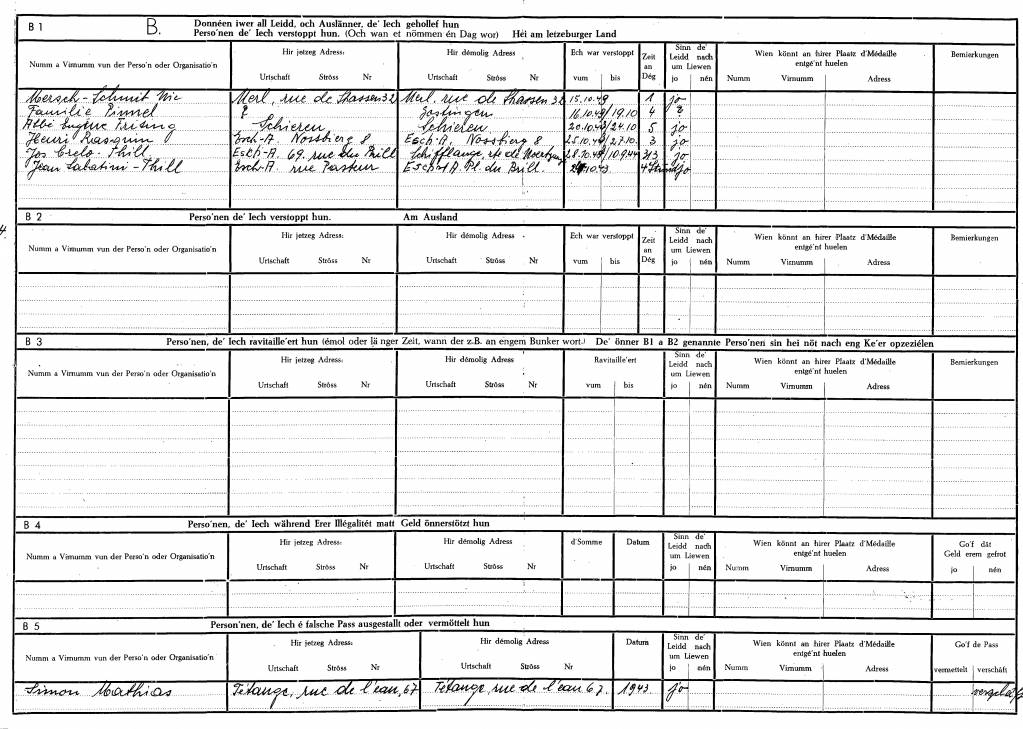 B 1 B. Donnéen iwer all Leidd, och Auslänner, de' Iech gehollef hun
Perso'nen de' Iech verstoppt hun. (Och wan et nömmen én Dag wor) Héi am letzeburger Land
Numm a Virnumm vun der Perso'n oder Organisatio'n
Hir jetzeg Adress:
Urtschaft Ströss Nr
Hir démolig Adress
Urtschaft Ströss Nr
Ech war verstoppt
vum bis
Zeit an Dég
Sinn de' Leidd nach um Liewen
jo nén
Wien könnt an hirer Plaatz d'Médaille entgé'nt huelen
Numm Virnumm Adress
Bemierkungen
Mersch-Schmit Nic Merl, rue de Strassen 32 Merl, rue de Strassen 32 15.10.43 1 jo
Familie Pinnel ? 16.10.43/19.10 4 ?
Albé Eugène Schieren Schieren 20.10.43/24.10 5 jo
Henri Esch-A. Nossbierg 8 Esch-A, Nossbierg 8 25.10.43/27.10. 3 jo
Jos Thill Esch-A. 69, rue du Brill Schifflange, 28.10.43/10.9.44 313 jo
Jean Sabatini-Thill Esch-A. rue Pasteur Esch A Pl. du Brill. 10.43. jo
B 2 Perso'nen de' Iech verstoppt hun. Am Ausland
Numm a Virnumm vun der Perso'n oder Organisatio'n
Hir jetzeg Adress:
Urtschaft Ströss Nr
Hir démolig Adress
Urtschaft Ströss Nr
Ech war verstoppt
vum bis
Zeit an Dég
Sinn de' Leidd nach um Liewen
jo nén
Wien könnt an hirer Plaatz d'Médaille entgé'nt huelen
Numm Virnumm Adress
Bemierkungen
4.
B 3 Perso'nen, de' Iech ravitaille'ert hun (émol oder länger Zeit, wann der z.B. an engem Bunker wort.) De' önner B1 a B2 genannte Perso'nen sin hei nöt nach eng Ke'er opzeziélen
Numm a Virnumm vun der Perso'n oder Organisatio'n
Hir jetzeg Adress:
Urtschaft Ströss Nr
Hir démolig Adress
Urtschaft Ströss Nr
Ravitaille'ert
vum bis
Sinn de' Leidd nach um Liewen
jo nén
Wien könnt an hirer Plaatz d'Médaille entgé'nt huelen
Numm Virnumm Adress
Bemierkungen
B 4 Perso'nen, de' Iech während Erer Illégalitét matt Geld önnerstötzt hun
Numm a Virnumm vun der Perso'n oder Organisatio'n
Hir jetzeg Adress:
Urtschaft Ströss Nr
Hir démolig Adress
Urtschaft Ströss Nr
d'Somme
Datum
Sinn de' Leidd nach um Liewen
jo nén
Wien könnt an hirer Plaatz d'Médaille entgé'nt huelen
Numm Virnumm Adress
Go'f dât Geld erem gefrot
jo nén
B 5 Person'nen, de' Iech é falsche Pass ausgestallt oder vermöttelt hun
Numm a Virnumm vun der Perso'n oder Organisatio'n
Hir jetzeg Adress:
Urtschaft Ströss Nr
Hir démolig Adress
Urtschaft Ströss Nr
Datum
Sinn de' Leidd nach um Liewen
jo nén
Wien könnt an hirer Plaatz d'Médaille entgé'nt huelen
Numm Virnumm Adress
Go'f de Pass
vermettelt verschâft
Simon Mathias Tétange, rue de l'eau, 67 Tétange, rue de l'eau 67. 1943. jo